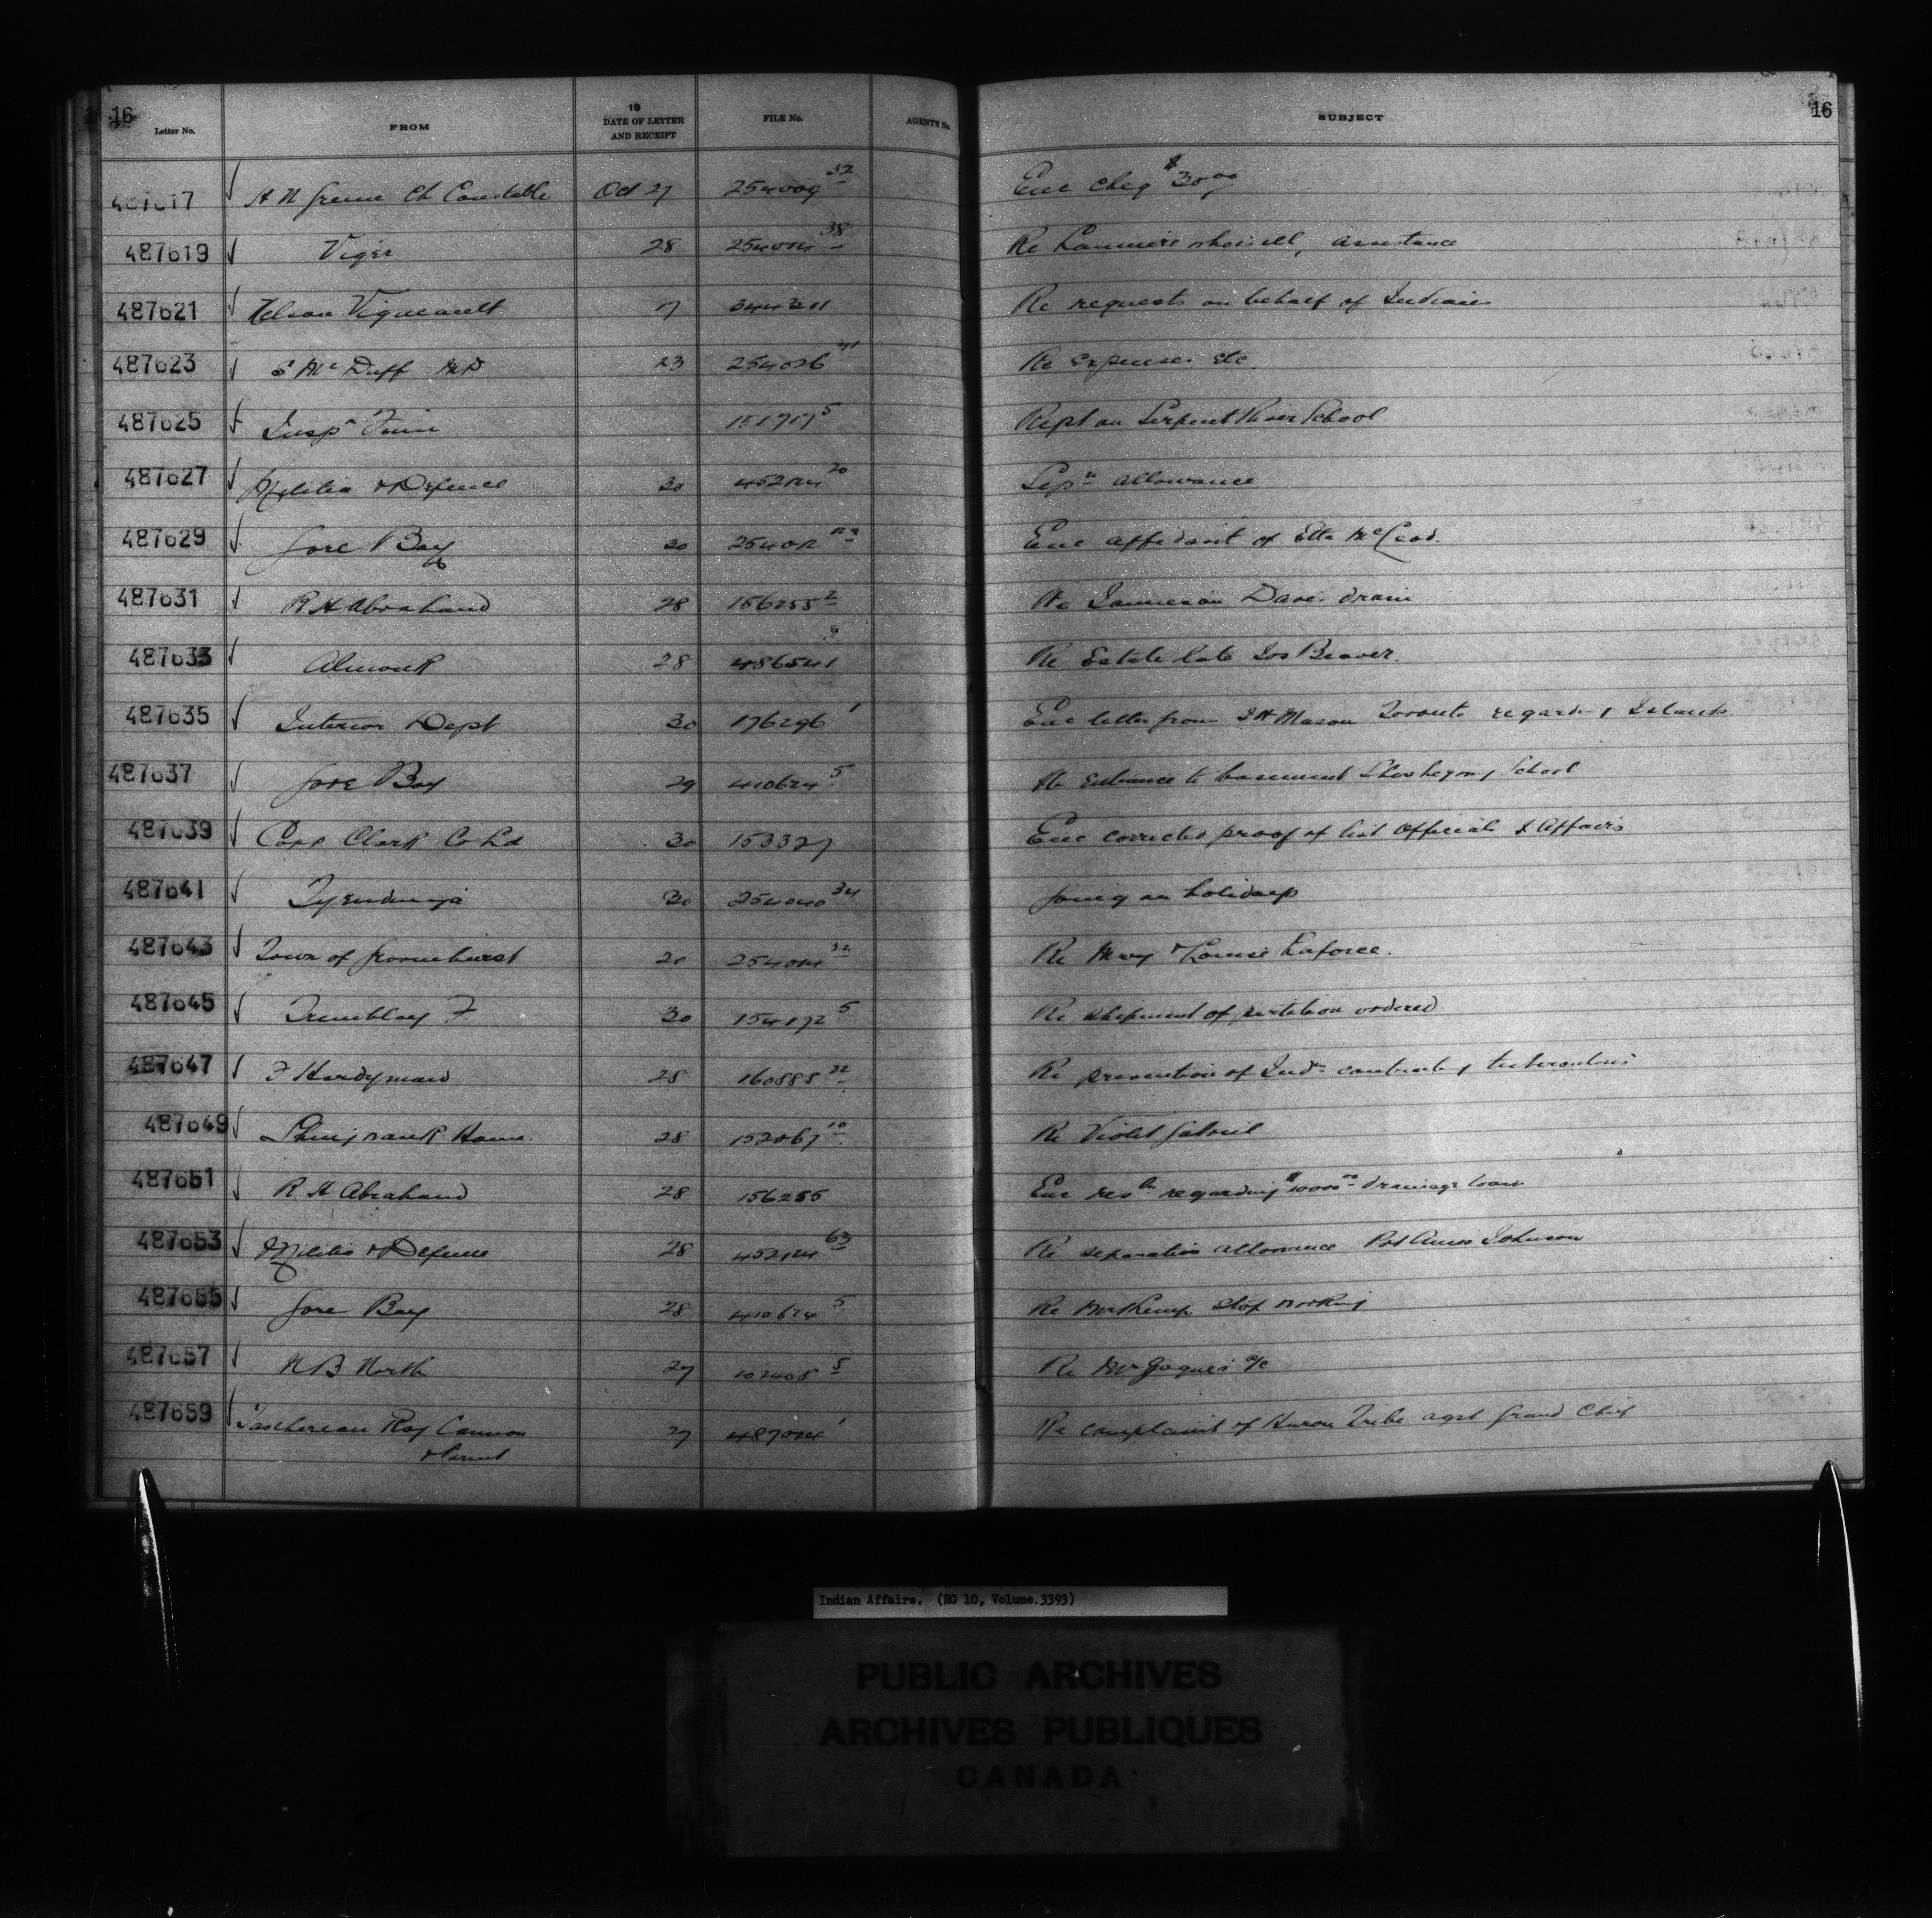 16 Letter No. FROM 19 DATE OF LETTER AND RECEIPT FILE No. AGENT'S No. SUBJECT 16
487617 Ch Constable Oct 27 254009 32 Enc cheq $30 00
487619 Viger 28 254014 38 Re assistance
487621 Vigneault 17 Re requests on behalf of Indians
487623 S McDuff MD 23 254026 41 Re Expenses etc.
487625 Insp 151717 5 Rept on Serpent River School
487627 Militia & Defence 30 452124 20 Sepn allowance
487629 Gore Bay 30 Enc affidavit of Etta McLeod.
487631 R H Abraham 28 156255 2 Re drain
487633 28 486541 Re Estate late Jos Beaver.
487635 Interior Dept 30 176296 1 Enc letter from Mason Toronto regarding Islands
487637 Gore Bay 29 410624 5 Re Entrance to basement School
487639 Copp Clark Co Ld 30 153327 Enc corrected proof of list Officials I Affairs
487641 Tyendinaga 30 254040 34 Going on holidays
487643 Town of 20 254014 32 Re Mary & Louise Laforce.
487645 Tremblay F 30 154192 5 Re shipment of partition ordered
487647 F Hardyman 28 160885 22 Re prevention of Indns contracting tuberculosis
487649 Shingwauk Home. 28 152067 10 Re Violet Gabriel
487651 R H Abraham 28 156255 Enc resln regarding $10000 00 drainage loan
487653 Militia & Defence 28 452124 63 Re separation allowance Pvt Amos Johnson
487655 Gore Bay 28 410624 5 Re stop working
487657 N B North 27 102408 5 Re Mr Jaques a/c
487659 Taschereau Roy Cannon 27 487024 1 Re complaint of Huron Tribe agst Grand Chief
& Parent
Indian Affairs. (RG 10, Volume.3393)
PUBLIC ARCHIVES
ARCHIVES PUBLIQUES
CANADA